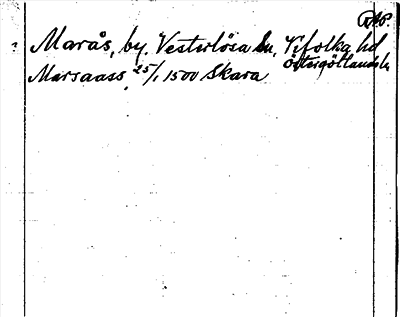 RAP.
? Marås, by. Vesterlösa sn, Vifolka hd
Östergötlands l.
Marsaass 25/1 1500 Skara